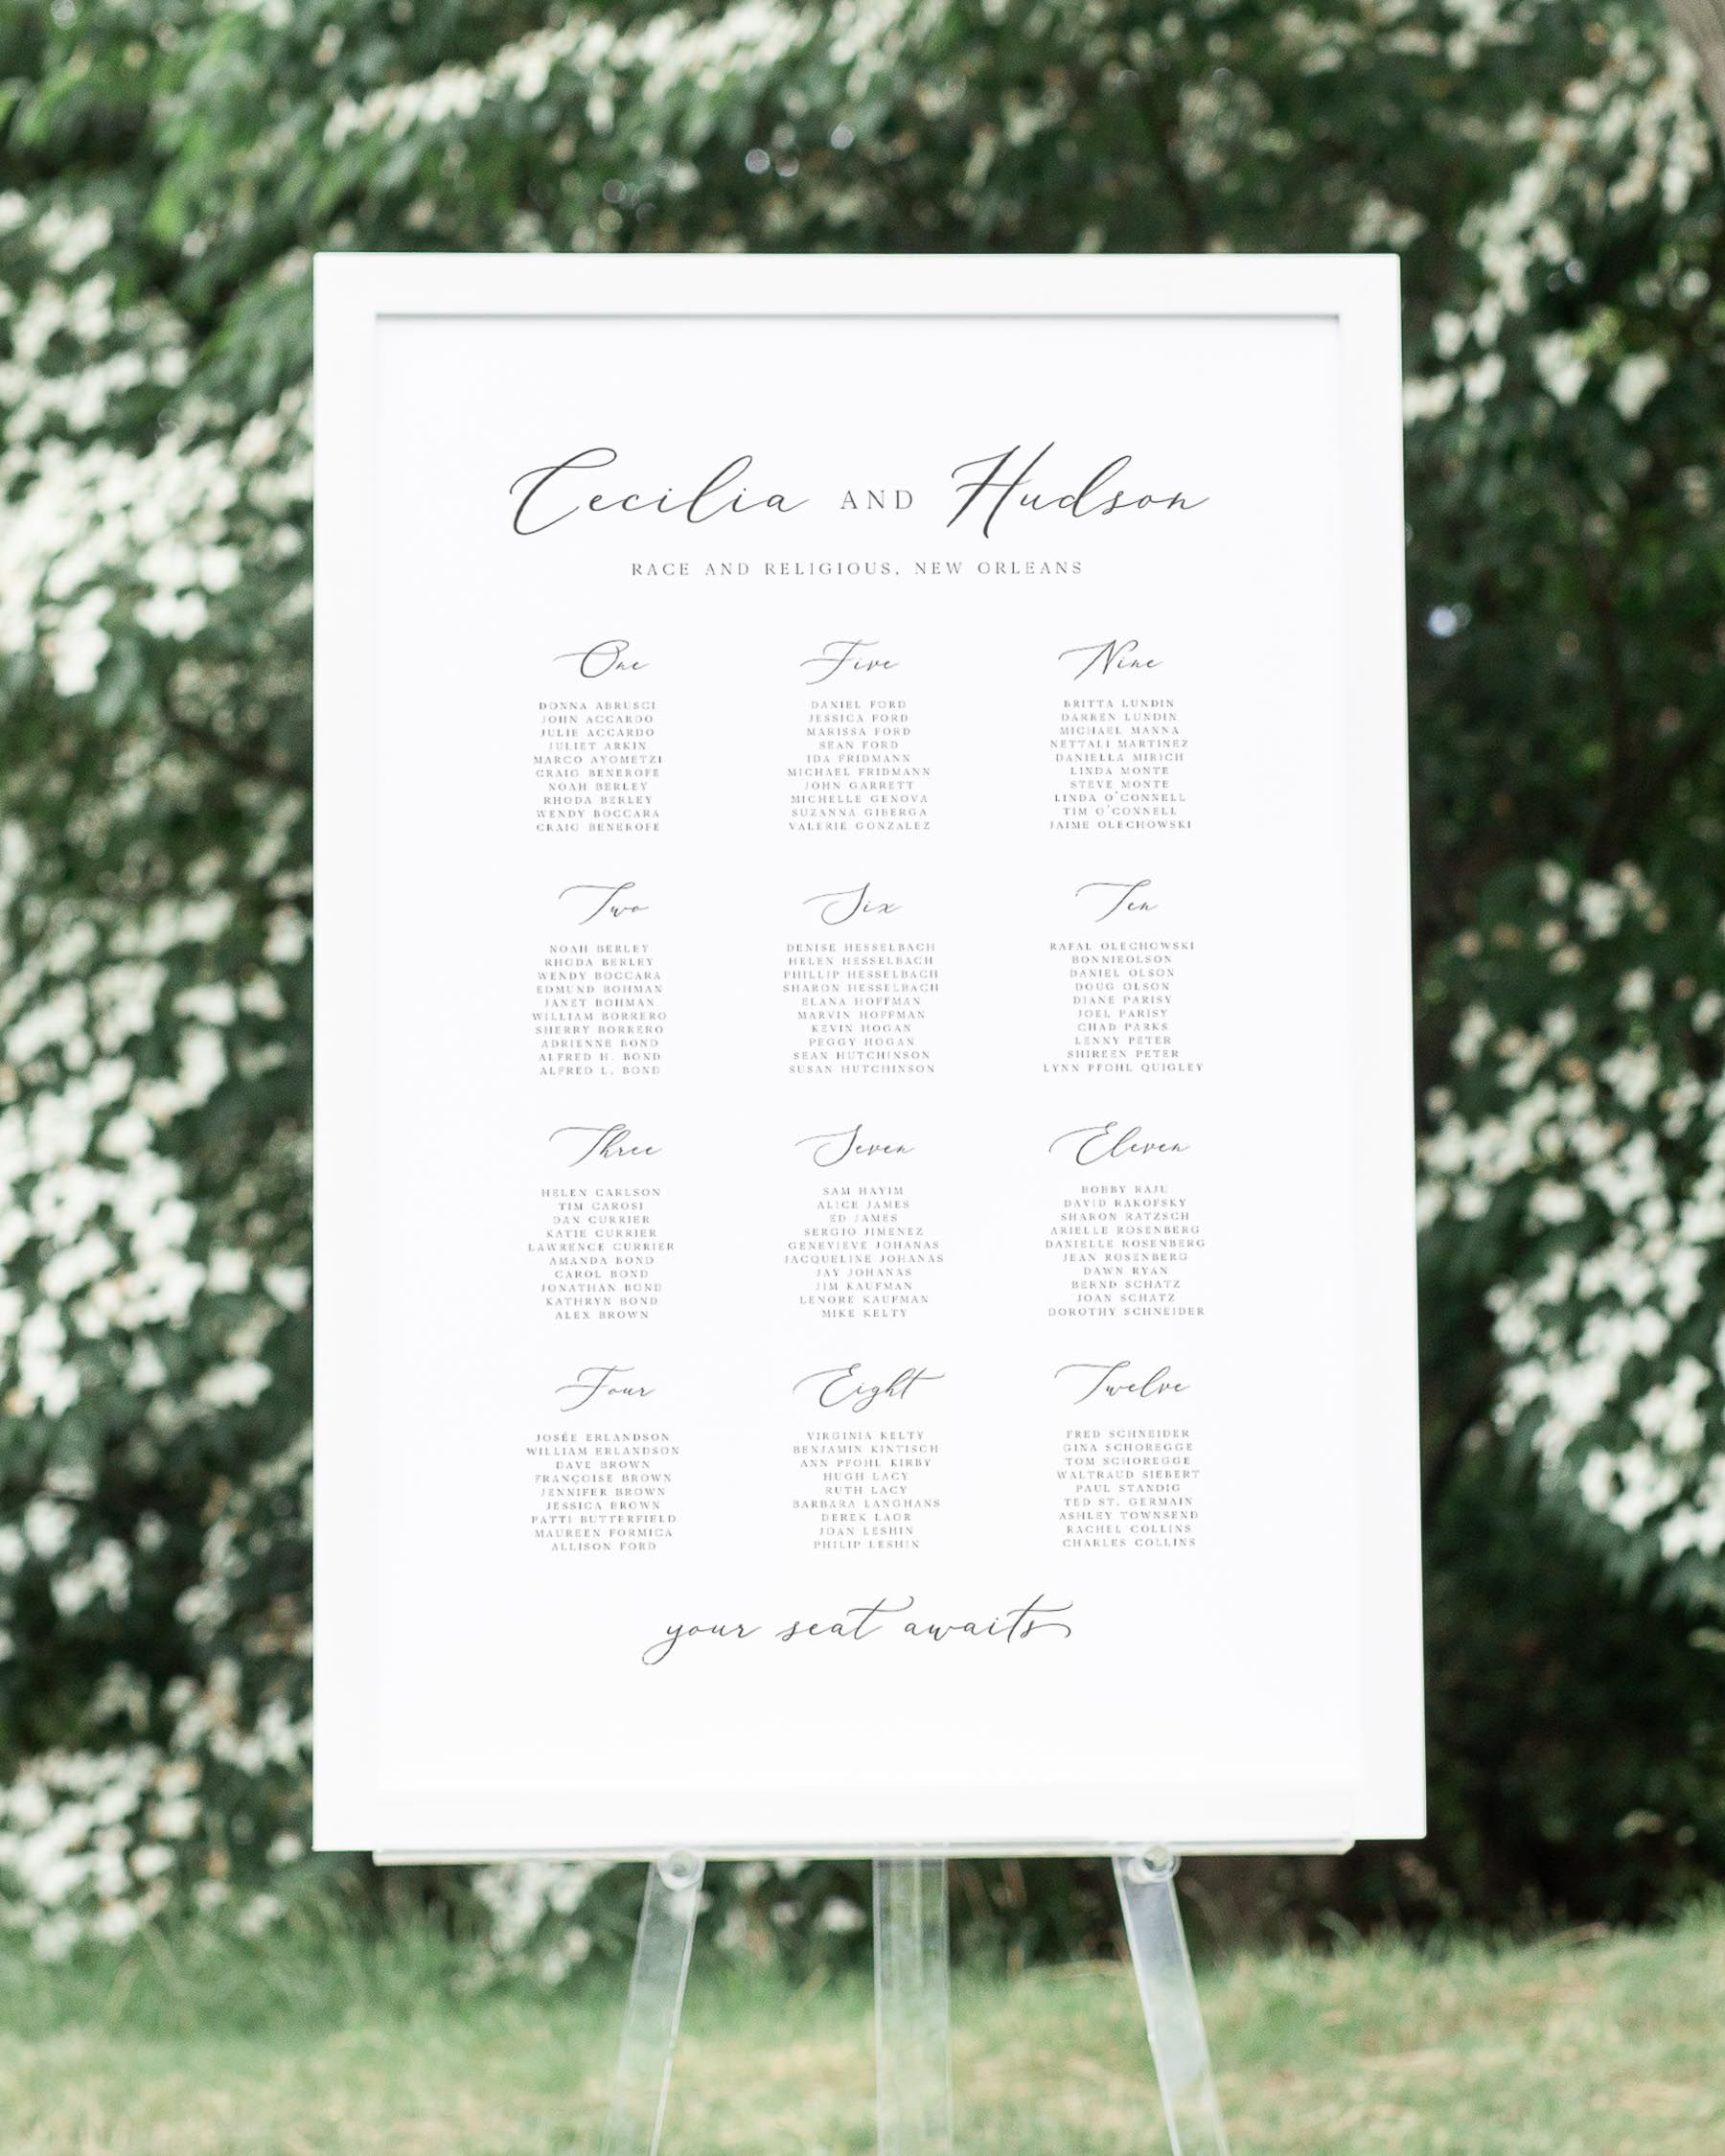 Cecilia AND Hudson
RACE AND RELIGIOUS, NEW ORLEANS
One
DONNA ABRUSCI
JOHN ACCARDO
JULIE ACCARDO
JULIET ARKIN
MARCO AYOMETZI
CRAIG BENEROFE
NOAH BERLEY
RHODA BERLEY
WENDY BOCCARA
CRAIG BENEROFE
Two
NOAH BERLEY
RHODA BERLEY
WENDY BOCCARA
EDMUND BOHMAN
JANET BOHMAN
WILLIAM BORRERO
SHERRY BORRERO
ADRIENNE BOND
ALFRED H. BOND
ALFRED L. BOND
Three
HELEN CARLSON
TIM CAROSI
DAN CURRIER
KATIE CURRIER
LAWRENCE CURRIER
AMANDA BOND
CAROL BOND
JONATHAN BOND
KATHRYN BOND
ALEX BROWN
Four
JOSÉE ERLANDSON
WILLIAM ERLANDSON
DAVE BROWN
FRANÇOISE BROWN
JENNIFER BROWN
JESSICA BROWN
PATTI BUTTERFIELD
MAUREEN FORMICA
ALLISON FORD
Five
DANIEL FORD
JESSICA FORD
MARISSA FORD
SEAN FORD
IDA FRIDMANN
MICHAEL FRIDMANN
JOHN GARRETT
MICHELLE GENOVA
SUZANNA GIBERGA
VALERIE GONZALEZ
Six
DENISE HESSELBACH
HELEN HESSELBACH
PHILLIP HESSELBACH
SHARON HESSELBACH
ELANA HOFFMAN
MARVIN HOFFMAN
KEVIN HOGAN
PEGGY HOGAN
SEAN HUTCHINSON
SUSAN HUTCHINSON
Seven
SAM HAYIM
ALICE JAMES
ED JAMES
SERGIO JIMENEZ
GENEVIEVE JOHANAS
JACQUELINE JOHANAS
JAY JOHANAS
JIM KAUFMAN
LENORE KAUFMAN
MIKE KELTY
Eight
VIRGINIA KELTY
BENJAMIN KINTISCH
ANN PFOHL KIRBY
HUGH LACY
RUTH LACY
BARBARA LANGHANS
DEREK LAOR
JOAN LESHIN
PHILIP LESHIN
Nine
BRITTA LUNDIN
DARREN LUNDIN
MICHAEL MANNA
NETTALI MARTINEZ
DANIELLA MIRICH
LINDA MONTE
STEVE MONTE
LINDA O'CONNELL
TIM O'CONNELL
JAIME OLECHOWSKI
Ten
RAFAL OLECHOWSKI
BONNIEOLSON
DANIEL OLSON
DOUG OLSON
DIANE PARISY
JOEL PARISY
CHAD PARKS
LENNY PETER
SHIREEN PETER
LYNN PFOHL QUIGLEY
Eleven
BOBBY RAJU
DAVID RAKOFSKY
SHARON RATZSCH
ARIELLE ROSENBERG
DANIELLE ROSENBERG
JEAN ROSENBERG
DAWN RYAN
BERND SCHATZ
JOAN SCHATZ
DOROTHY SCHNEIDER
Twelve
FRED SCHNEIDER
GINA SCHOREGGE
TOM SCHOREGGE
WALTRAUD SIEBERT
PAUL STANDIG
TED ST. GERMAIN
ASHLEY TOWNSEND
RACHEL COLLINS
CHARLES COLLINS
your seat awaits